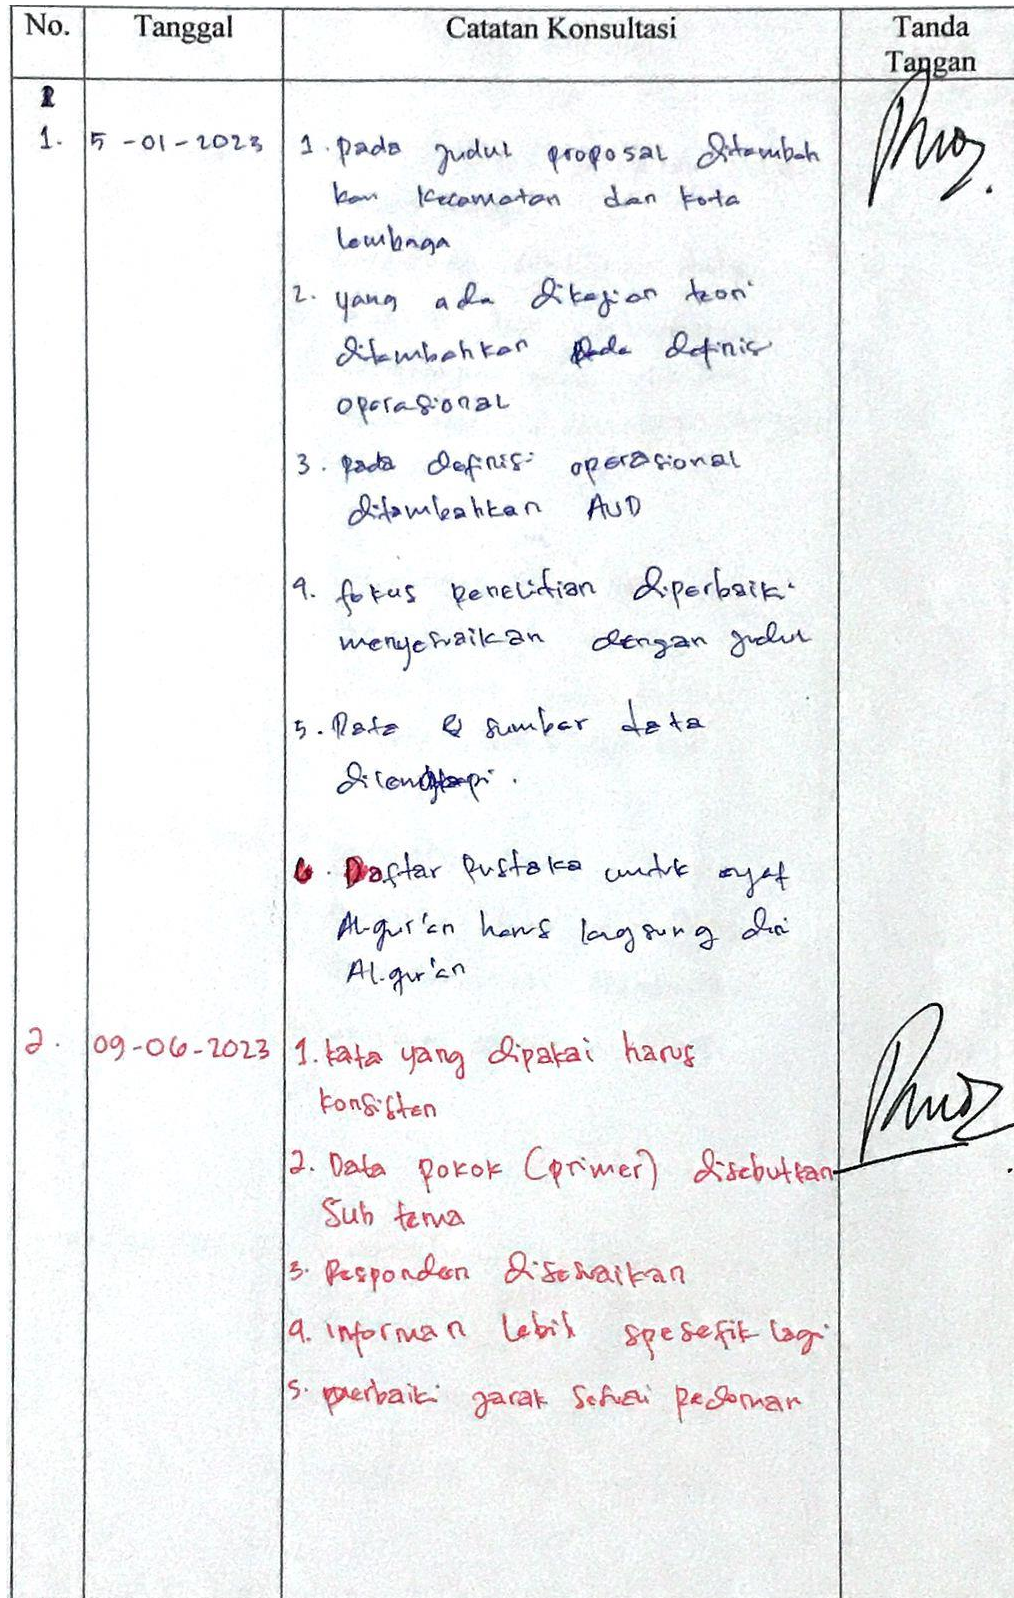 No. Tanggal Catatan Konsultasi Tanda
Tangan
1. 5-01-2023 1. pada judul proposal ditambah
kan Kecamatan dan kota
lembaga
2. yang ada dikajian teori
ditambahkan pada definisi
operasional
3. pada definisi operasional
ditambahkan AUD
4. fokus penelitian diperbaiki
menyesuaikan dengan judul
5. Data & sumber data
dilengkapi.
6. Daftar Pustaka untuk ayat
Al-qur'an harus lagsung dari
Al-qur'an
2. 09-06-2023 1. kata yang dipakai harus
konsisten
2. Data pokok (primer) disebutkan
Sub tema
3. Responden disesuaikan
4. informan lebih spesefik lagi
5. perbaiki jarak sesuai pedoman